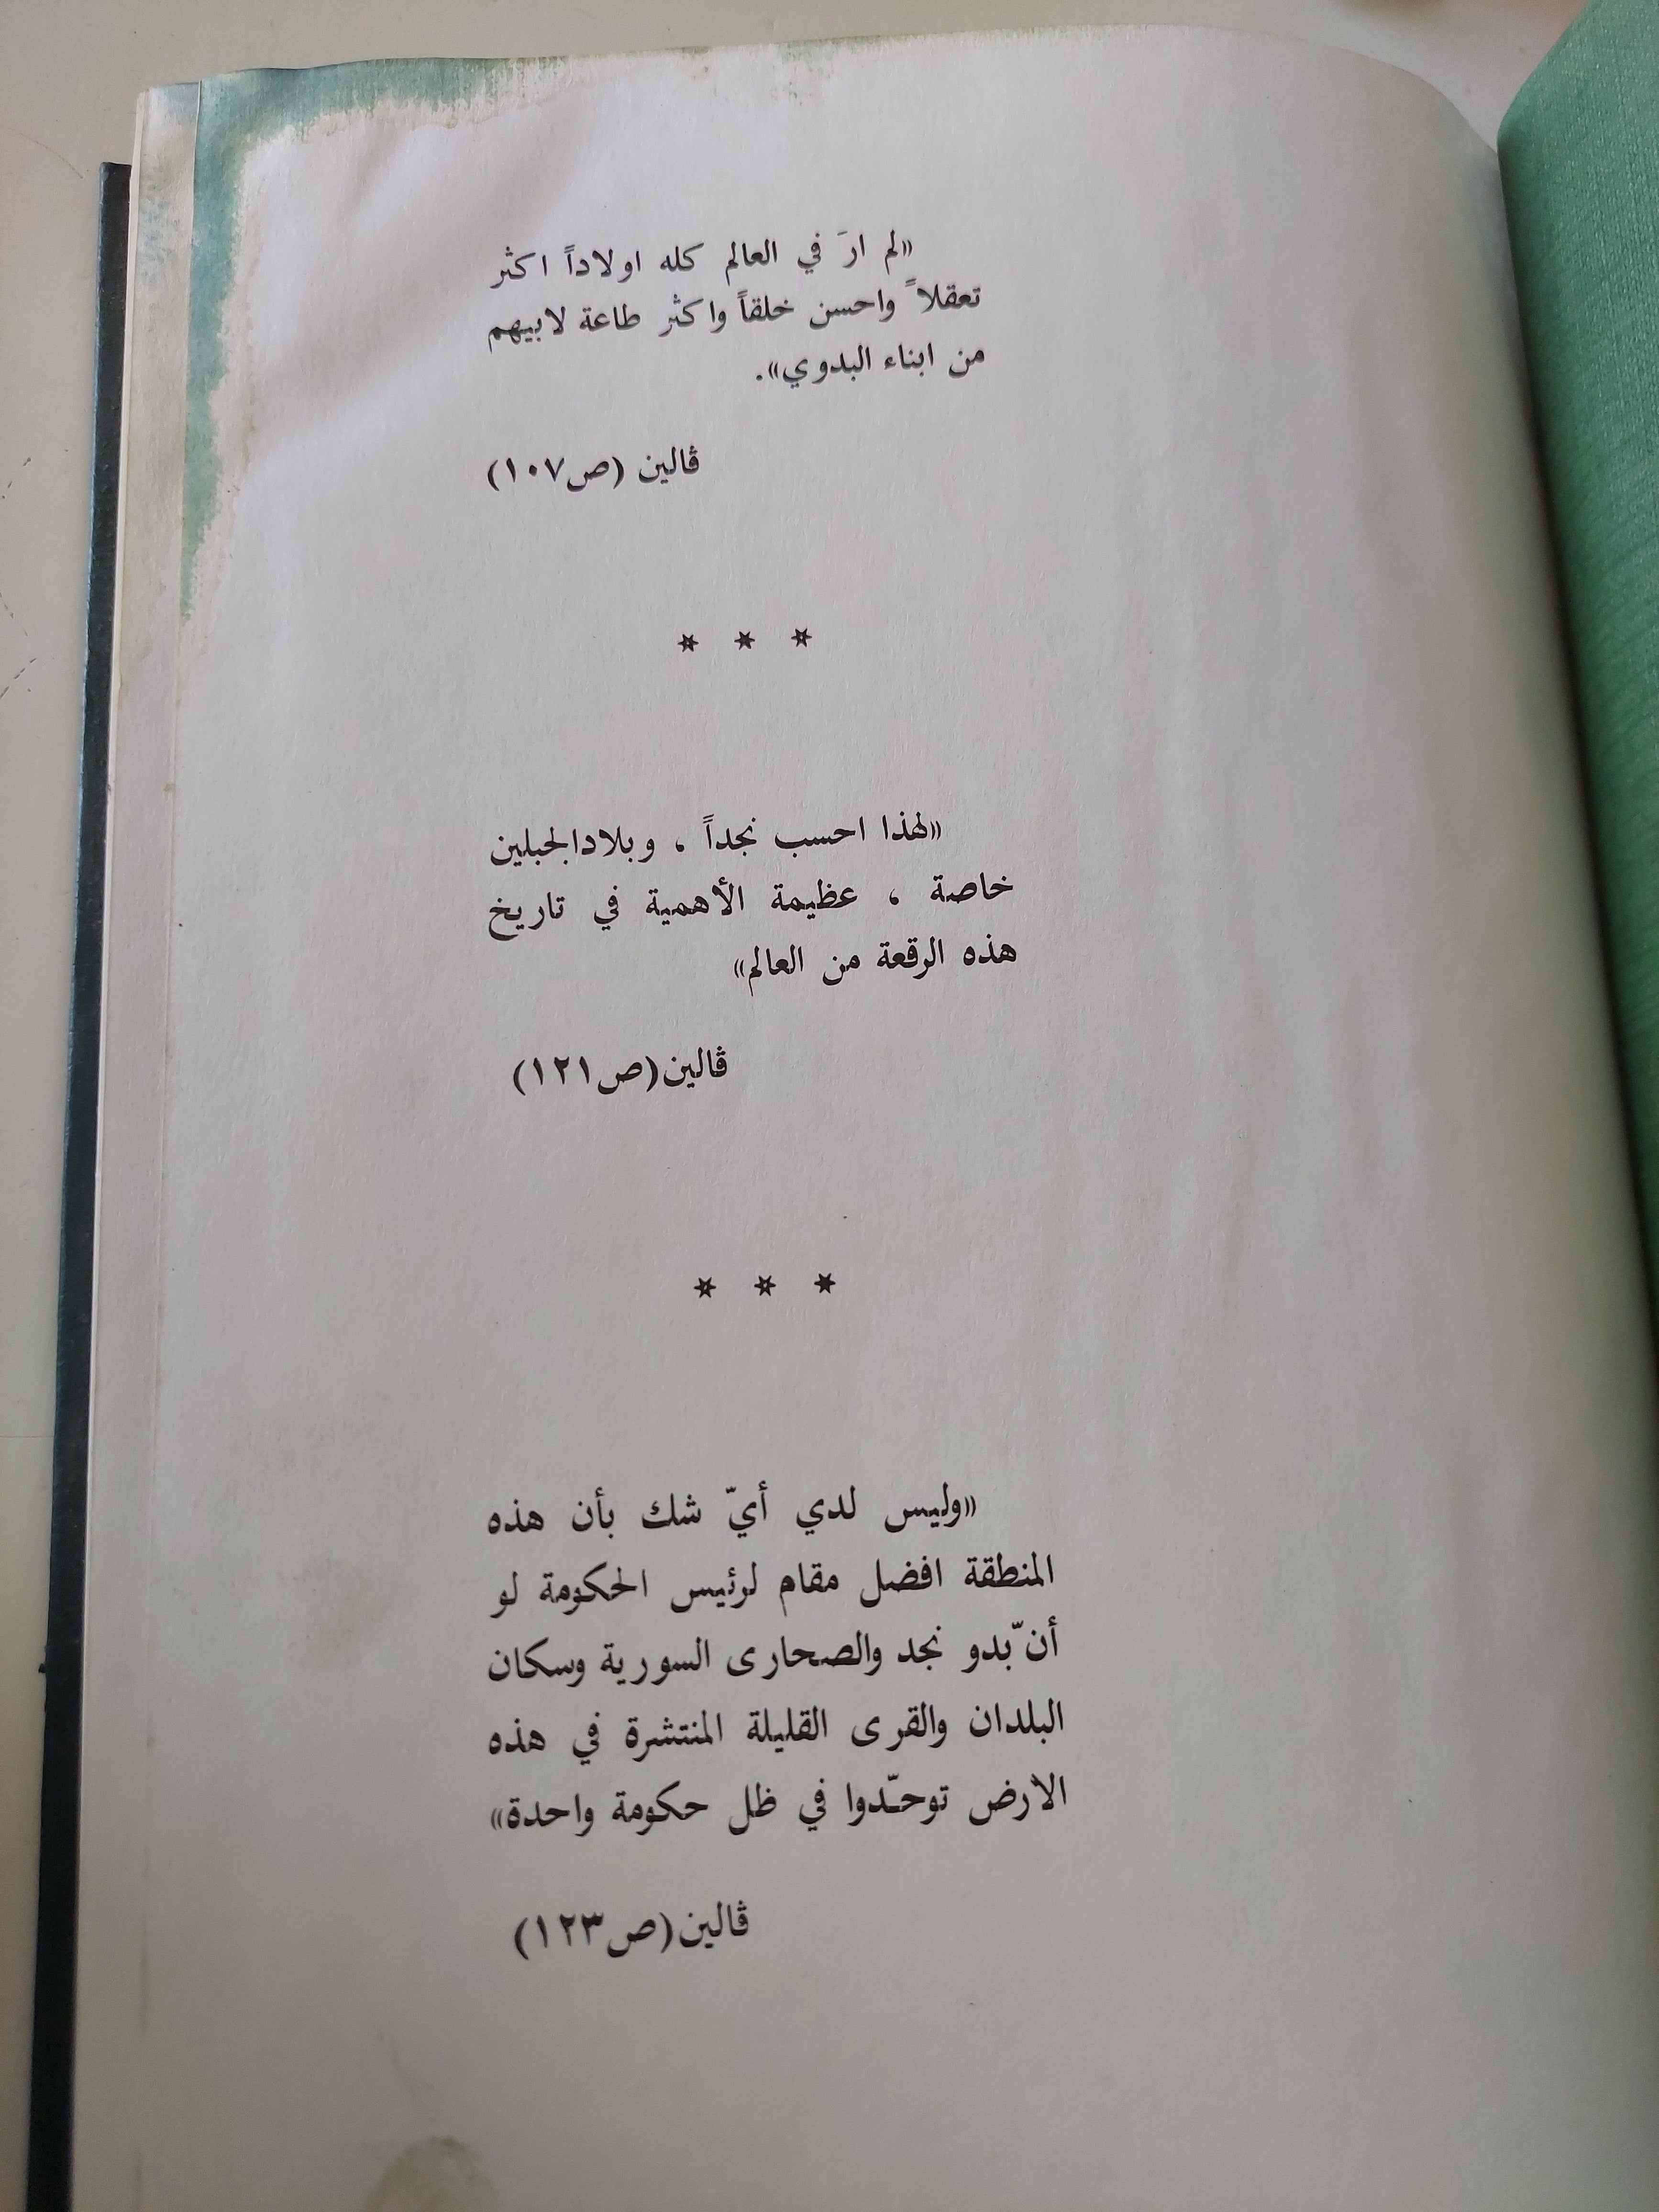 «لم ارَ في العالم كله اولاداً اكثر
تعقلاً واحسن خلقاً واكثر طاعة لابيهم
من ابناء البدوي».
ڤالين (ص١٠٧)
* * *
«لهذا احسب نجداً ، وبلادالجبلين
خاصة ، عظيمة الأهمية في تاريخ
هذه الرقعة من العالم»
ڤالين(ص١٢١)
* * *
«وليس لدي أيّ شك بأن هذه
المنطقة افضل مقام لرئيس الحكومة لو
أنّ بدو نجد والصحارى السورية وسكان
البلدان والقرى القليلة المنتشرة في هذه
الارض توحّدوا في ظل حكومة واحدة»
ڤالين(ص١٢٣)